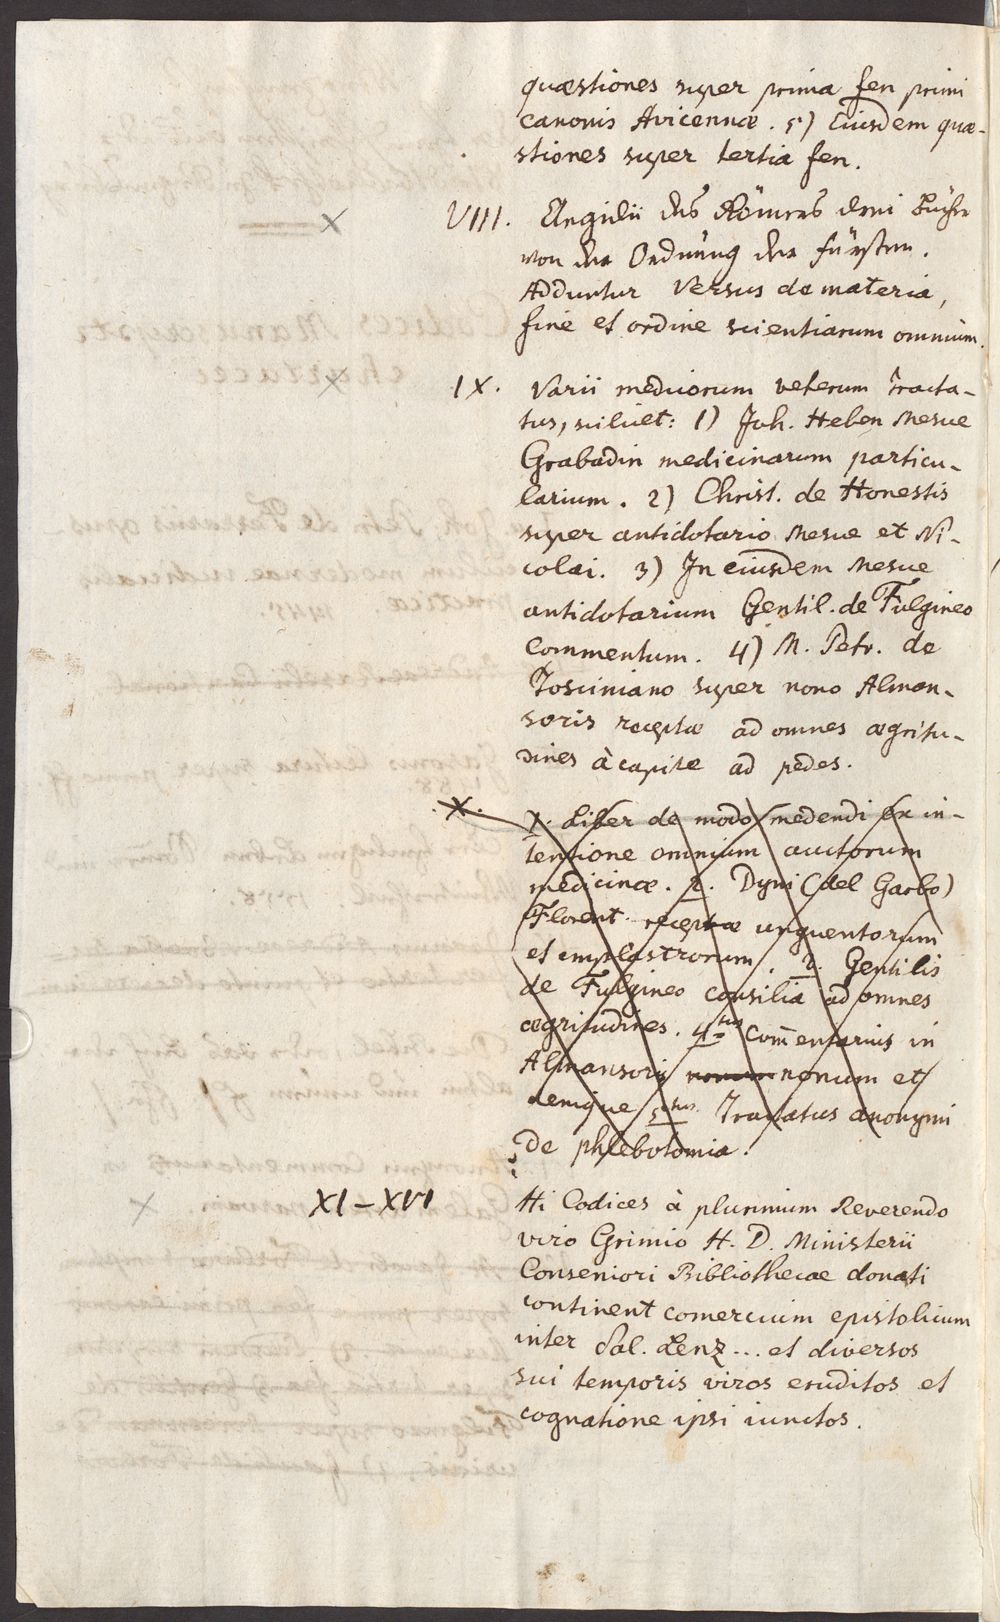 quæstiones super prima fen primi
canonis Avicennæ. 5) Eiusdem quæ-
stiones super tertia fen.
VIII. Aegidii des Römers drei Bücher
von der Ordnung der Fürsten.
Adduntur Versus de materia,
fine et ordine scientiarum omnium.
IX. Varii medicorum veterum Tracta-
tus, scilicet: 1) Joh. Heben Mesue
Grabadin medicinarum particu-
larium. 2) Christ. de Honestis
super antidotario Mesue et Ni-
colai. 3) In eiusdem Mesue
antidotarium Gentil. de Fulgineo
Commentum. 4) M. Petr. de
Tosciniano super nono Alman-
soris receptæ ad omnes ægritu-
dines à capite ad pedes.
X. 1. Liber de modo medendi ex in-
tentione omnium auctorum
medicinæ. 2. Dyni (del Garbo)
Florent. receptæ unguentorum
et emplastrorum. 3. Gentilis
de Fulgineo consilia ad omnes
ægritudines. 4tus Com̄entarius in
Almansoris nonum nonum et
denique 5tus Tractatus anonymi
de phlebotomia.
XI – XVI Hi Codices à plurimum Reverendo
viro Grimio H. D. Ministerii
Conseniori Bibliothecae donati
continent comercium epistolicum
inter Sal. Lenz... et diversos
sui temporis viros eruditos et
cognatione ipsi iunctos.